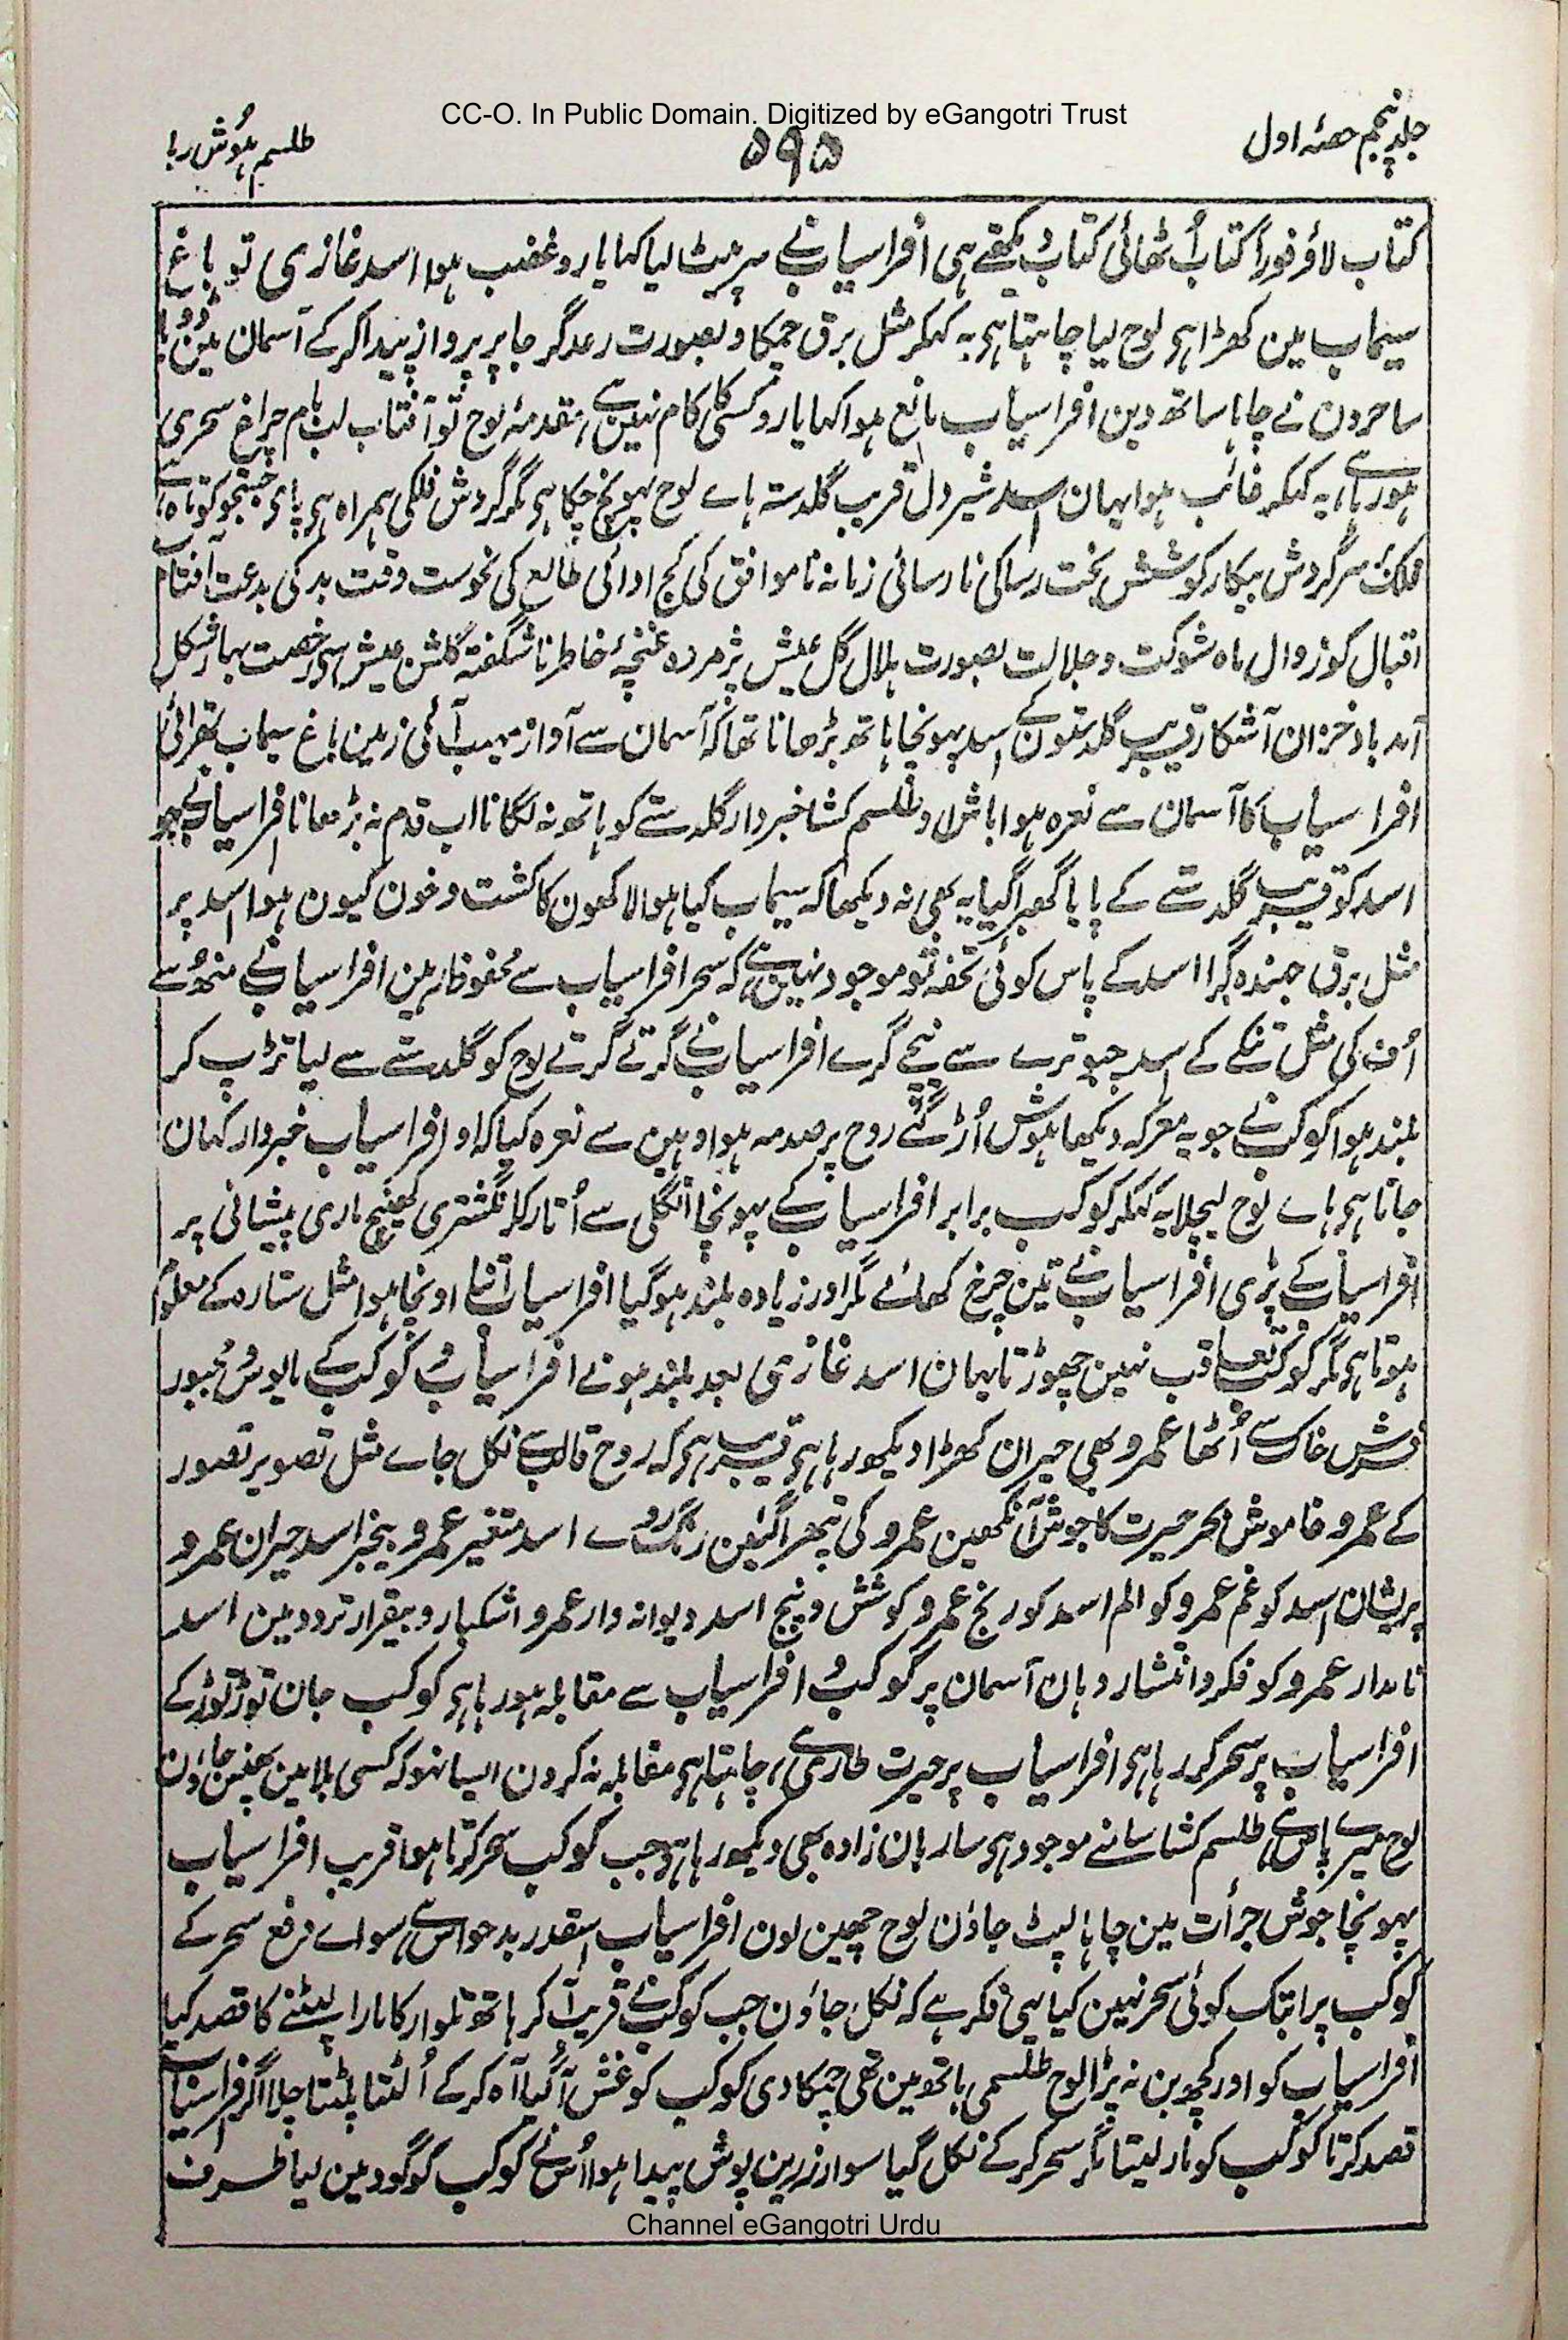 CC-O. In Public Domain. Digitized by eGangotri Trust
جلد پنجم حصۂ اول
۵۹۵
طلسم ہوش ربا
کتاب لاؤ فوراً کتاب اُٹھائی کتاب دیکھتے ہی افراسیاب نے سر پیٹ لیا کہا یارو غضب ہوا اسد غازی تو باغ
سیماب مین کھڑا ہی لوح لیا چاہتا ہی یہ کہکر مثل برق چمکا و بصورت رعد گرجا پر پرواز پیدا کر کے آسمان مین ڈوبا
ساحرون نے چاہا ساتھ دین افراسیاب مانع ہوا کہا یارو کسی کا کام نہین ہے مقدمۂ لوح تو آفتاب لب بام چراغ سحری
ہو رہا ہے یہ کہکر غائب ہوا یہان اسد شیر دل قریب گلدستہ ہاے لوح پہونچ چکا ہی مگر گردش فلکی ہمراہ ہی پاے جستجو کوتاہ ہے
فلک سرگردش بیکار کوشش بخت رسا کی نارسائی زمانہ ناموافق کی کج ادائی طالع کی نحوست وقت بد کی بدعت آفتاب
اقبال کو زوال ماہ شوکت و جلالت بصورت ہلال گل عیش پژمردہ غنچۂ خاطر ناشگفتہ گلشن عیش سے رخصت بہار شکل
آمد باد خزان آشکار قریب گلدستون کے اسد پہونچا ہاتھ بڑھانا تھا کہ آسمان سے آواز مہیب آئی زمین باغ سیماب تھرائی
افراسیاب کا آسمان سے نعرہ ہوا باش او طلسم کشا خبردار گلدستے کو ہاتھ نہ لگانا اب قدم نہ بڑھانا افراسیاب نے جو
اسد کو قریب گلدستے کے پایا گھبرا گیا یہ بھی نہ دیکھا کہ سیماب کیا ہوا لاکھون کا کشت و خون کیون ہوا اسد پر
مثل برق جہندہ گرا اسد کے پاس کوئی تحفہ تو موجود نہین ہے کہ سحر افراسیاب سے محفوظ رہین افراسیاب نے منھ سے
اُف کی مثل تنکے کے اسد چبوترے سے نیچے گرے افراسیاب نے گرتے گرتے لوح کو گلدستے سے لیا تڑپ کر
بلند ہوا کوکب نے جو یہ معرکہ دیکھا ہوش اُڑ گئے روح پر صدمہ ہوا وہین سے نعرہ کیا کہ او افراسیاب خبردار کہان
جاتا ہی ہاے لوح لیچلا یہ کہکر کوکب برابر افراسیاب کے پہونچا اُنگلی سے اُتار کر انگشتری کھینچ ماری پیشانی پر
افراسیاب کے پڑی افراسیاب نے تین چرخ کھائے مگر اور زیادہ بلند ہوگیا افراسیاب اتنا اونچا ہوا مثل ستارہ کے معلوم
ہوتا ہی مگر کوکب تعاقب نہین چھوڑتا یہان اسد غازی بعد بلند ہونے افراسیاب و کوکب کے مایوس و مجبور
فرش خاک سے اُٹھا عمرو بھی حیران کھڑا دیکھ رہا ہی قریب ہی کہ روح قالب سے نکل جاے مثل تصویر تصور
کے عمرو خاموش بحر حیرت کا جوش آنکھین عمرو کی پتھرا گئین رنگ روے اسد متغیر عمرو بیخبر اسد حیران عمرو
پریشان اسد کو غم عمرو کو الم اسد کو رنج عمرو کوشش و پنج اسد دیوانہ وار عمرو اشکبار و بیقرار تردد مین اسد
نامدار عمرو کو فکر و انتشار وہان آسمان پر کوکب و افراسیاب سے مقابلہ ہو رہا ہی کوکب جان توڑ توڑ کے
افراسیاب پر سحر کر رہا ہی افراسیاب پر حیرت طاری ہے چاہتا ہی مقابلہ نہ کرون ایسا نہو کہ کسی بلا مین پھنس جاؤن
لوح میرے پاس ہے طلسم کشا سامنے موجود ہی ساربان زادہ بھی دیکھ رہا ہی جب کوکب سحر کرتا ہوا قریب افراسیاب
پہونچا جوش جرأت مین چاہا لپٹ جاؤن لوح چھین لون افراسیاب اسقدر بدحواس ہے سواے دفع سحر کے
کوکب پر ابتک کوئی سحر نہین کیا یہی فکر ہے کہ نکل جاؤن جب کوکب نے قریب آ کر ہاتھ تلوار کا مارا لپٹنے کا قصد کیا
افراسیاب کو اور کچھ بن نہ پڑا لوح طلسمی ہاتھ مین تھی چمکا دی کوکب کو غش آ گیا آہ کر کے اُلٹتا پلٹتا چلا اگر افراسیاب
قصد کرتا کوکب کو مار لیتا مگر سحر کر کے نکل گیا سوار زرین پوش پیدا ہوا اُس نے کوکب کو گود مین لیا طرف
Channel eGangotri Urdu